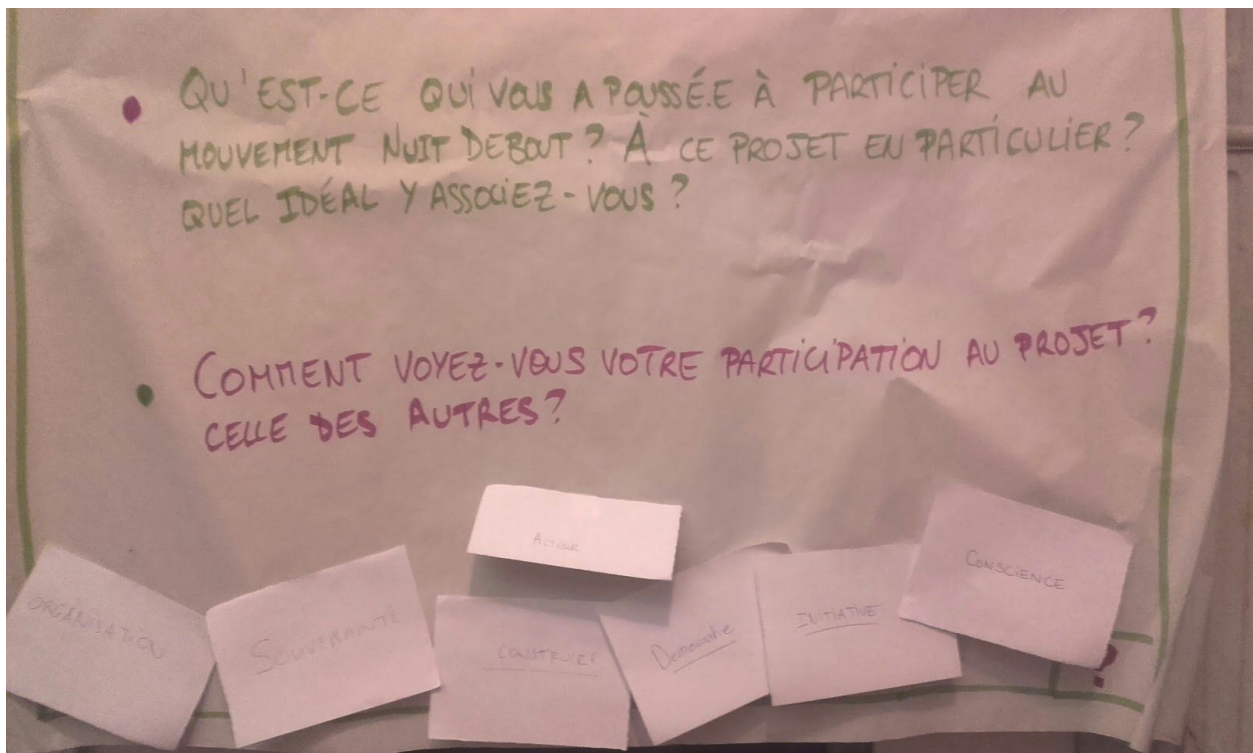 QU'EST-CE QUI VOUS A POUSSÉ.E À PARTICIPER AU
MOUVEMENT NUIT DEBOUT? À CE PROJET EN PARTICULIER?
QUEL IDÉAL Y ASSOCIEZ-VOUS?
COMMENT VOYEZ-VOUS VOTRE PARTICIPATION AU PROJET?
CELLE DES AUTRES?
Acteur
ORGANISATION
SOUVERAINTÉ
CONSTRUIRE
Démocratie
INITIATIVE
CONSCIENCE
?